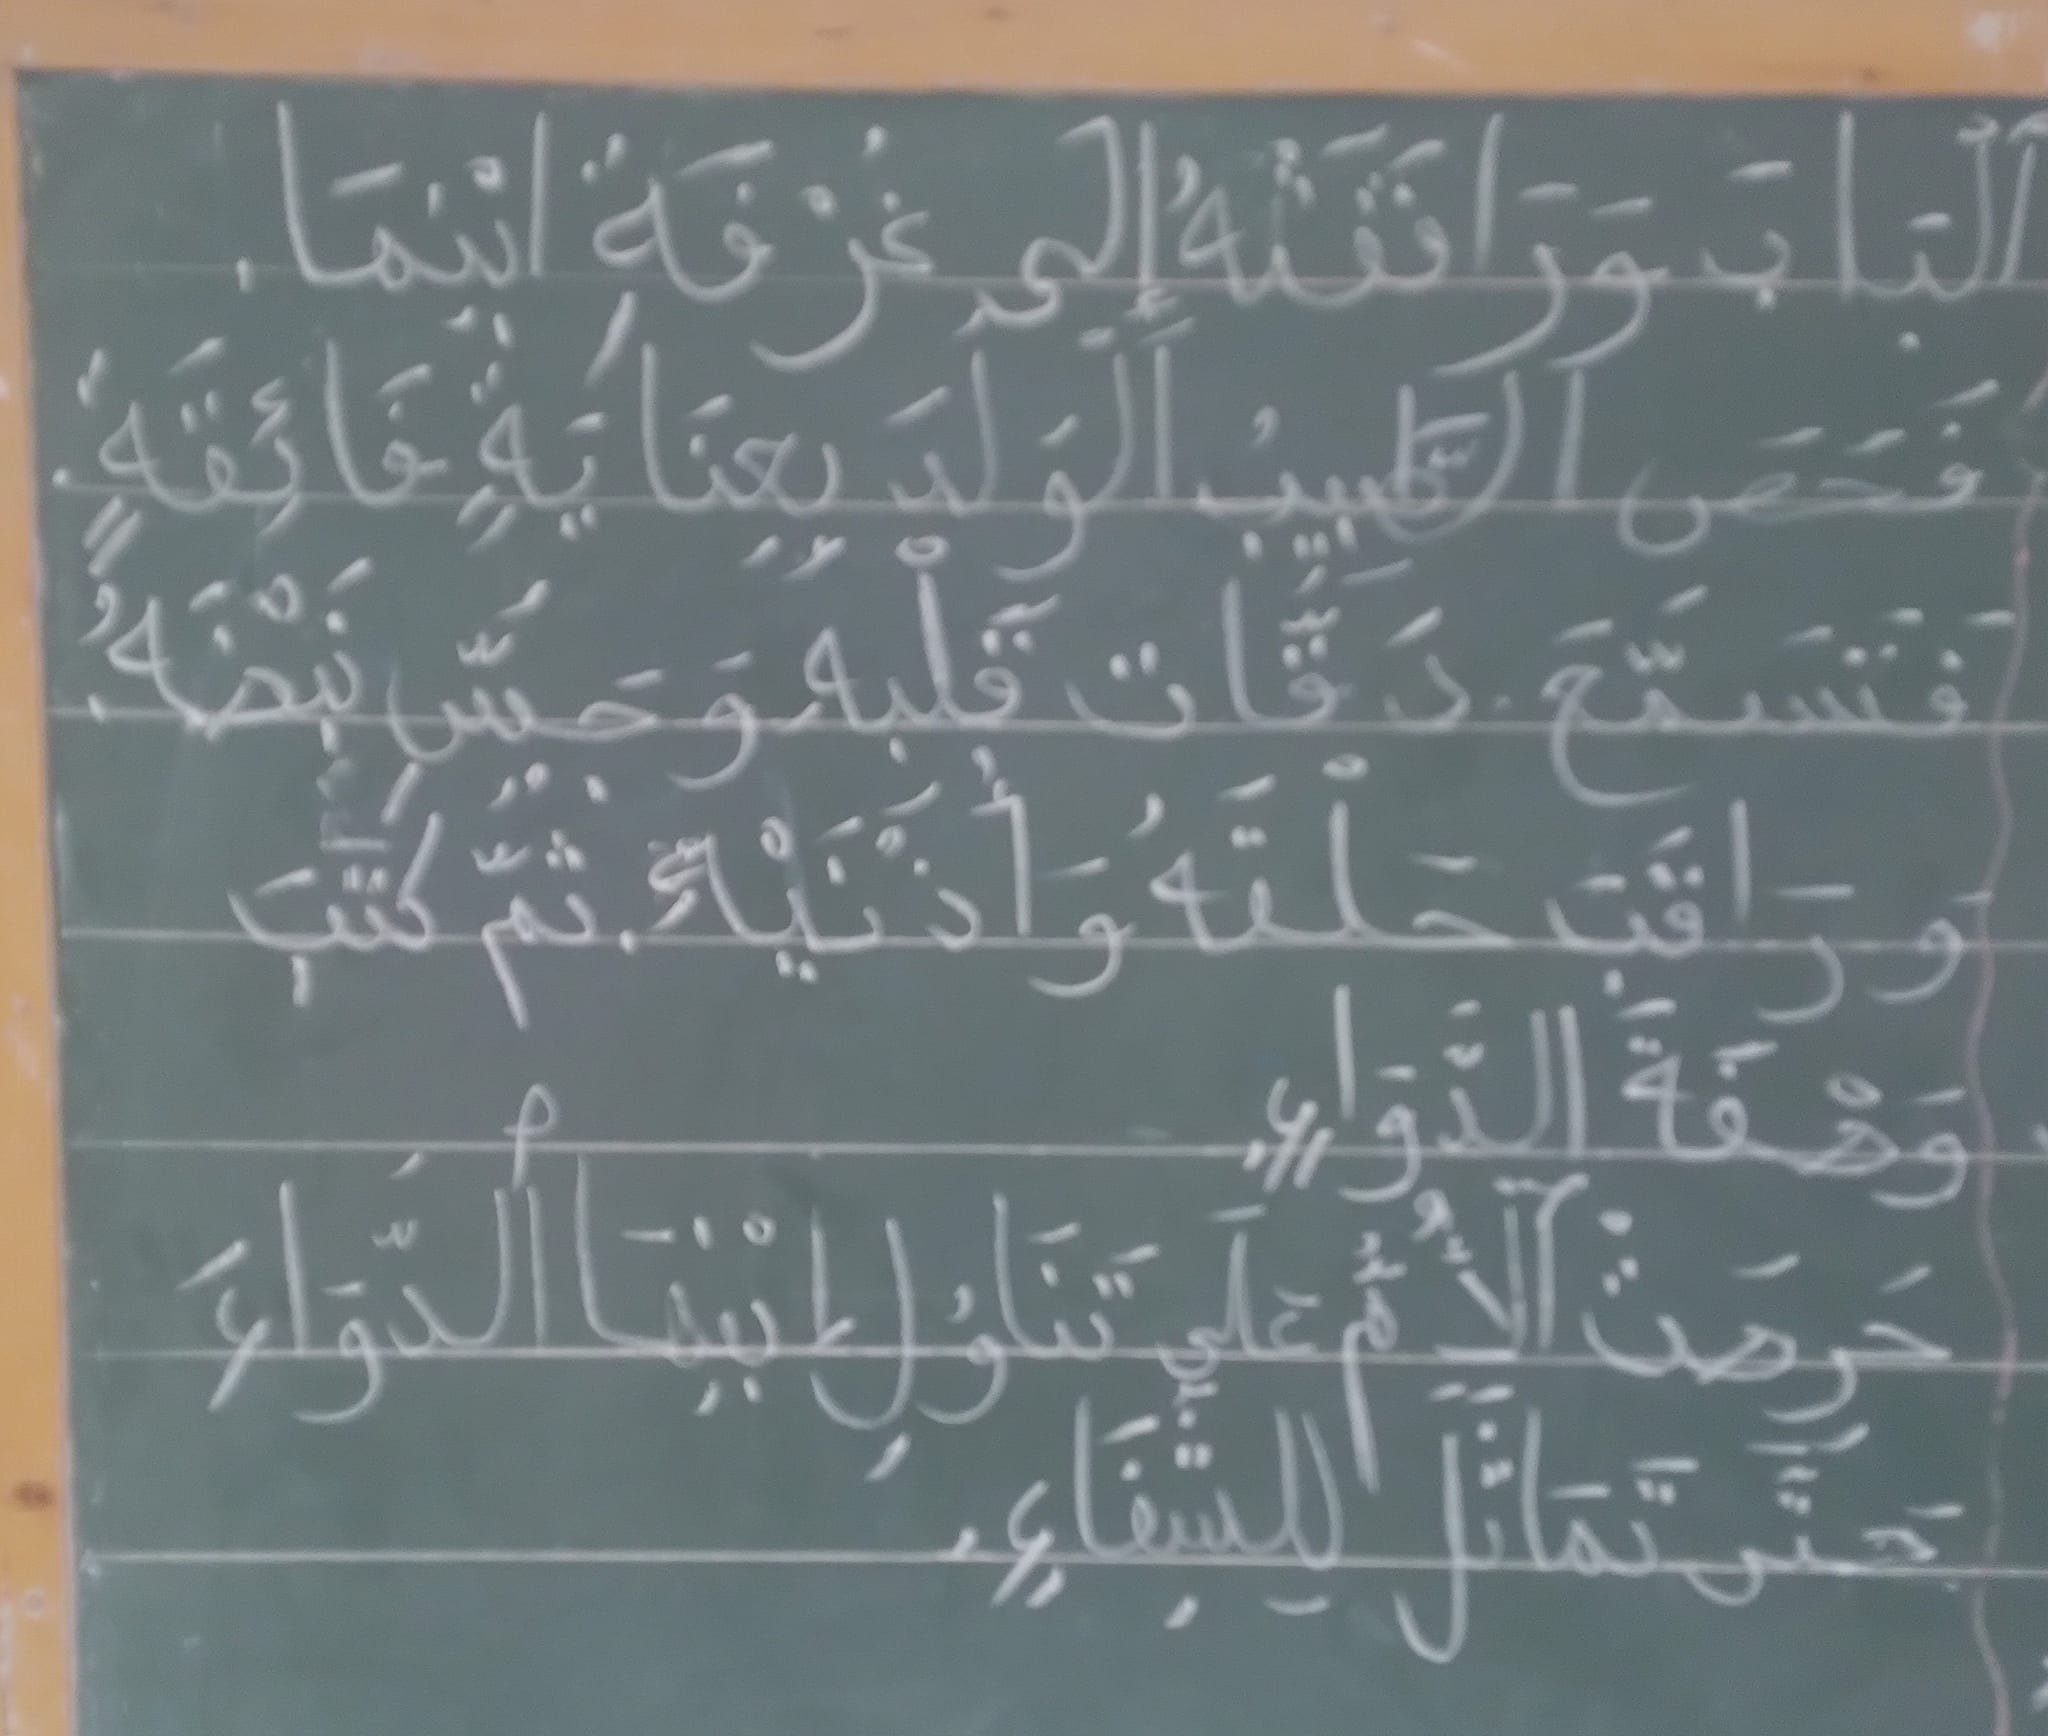 اَلْبَابَ وَرَافَقَتْهُ إِلَى غُرْفَةِ ابْنِهَا.
فَحَصَ الطَّبِيبُ الْوَلَدَ بِعِنَايَةٍ فَائِقَةٍ.
فَتَسَمَّعَ دَقَّات قَلْبِهِ وَجَسَّ نَبْضَهُ.
وَرَاقَبَ حَلْقَهُ وَأُذْنَيْهِ. ثُمّ كَتَبَ
وَصْفَةَ الدَّوَاءِ.
حَرِصَتْ الْأُمُّ عَلَى تَنَاوُلِ ابْنِهَا الدَّوَاءَ
حَتَّى تَمَاثَلَ لِلشِّفَاءِ.